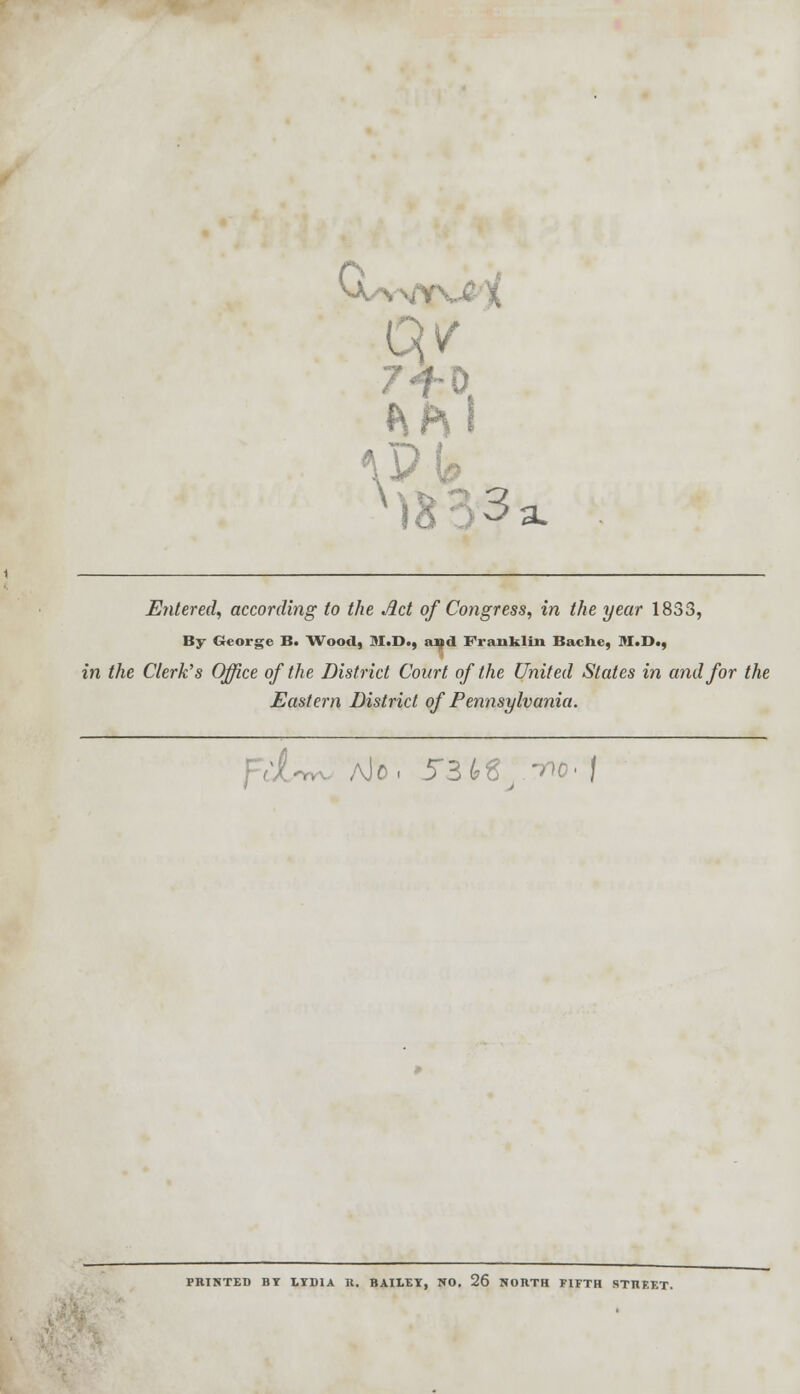 Annex
QV
740
AA1
D6
1833a
Entered, according to the Act of Congress, in the year 1833,
By George B. Wood, M.D., and Franklin Bache, M.D.,
in the Clerk's Office of the District Court of the United States in and for the
Eastern District of Pennsylvania.
Film No. 5368, no. 1
PRINTED BY LYDIA R. BAILEY, NO. 26 NORTH FIFTH STREET.